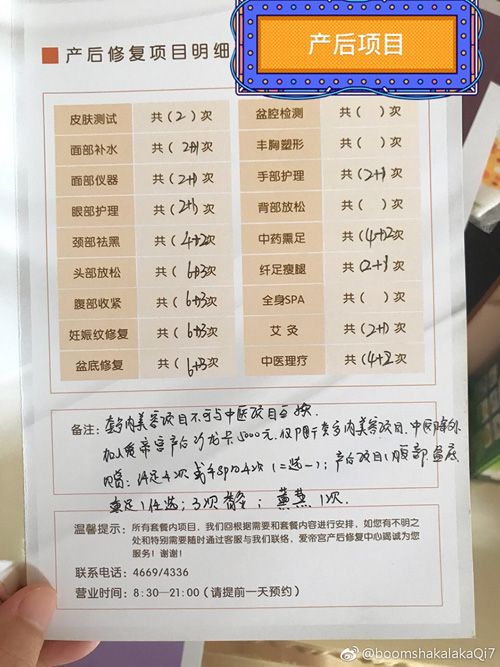 产后修复项目明细
产后项目
皮肤测试 共(2)次 盆腔检测 共( )次
面部补水 共(2+1)次 丰胸塑形 共( )次
面部仪器 共(2+1)次 手部护理 共(2+1)次
眼部护理 共(2+1)次 背部放松 共( )次
颈部祛黑 共(4+2)次 中药熏足 共(4+2)次
头部放松 共(6+3)次 纤足瘦腿 共(2+1)次
腹部收紧 共(6+3)次 全身SPA 共( )次
妊娠纹修复 共(6+3)次 艾灸 共(2+1)次
盆底修复 共(6+3)次 中医理疗 共(4+2)次
备注:套餐内美容项目不可与中医项目互换.
加入爱帝宫产后沙龙卡5000元,仅限于套餐内美容项目,中医除外
4次 SPA 4次(二选一);产后项目
任选;3次 1次.
温馨提示:所有套餐内项目,我们回根据需要和套餐内容进行安排,如您有不明之
处和特别需要随时通过客服与我们联络,爱帝宫产后修复中心竭诚为您
服务!谢谢!
联系电话:4669/4336
营业时间:8:30—21:00(请提前一天预约)
@boomshakalakaQi7